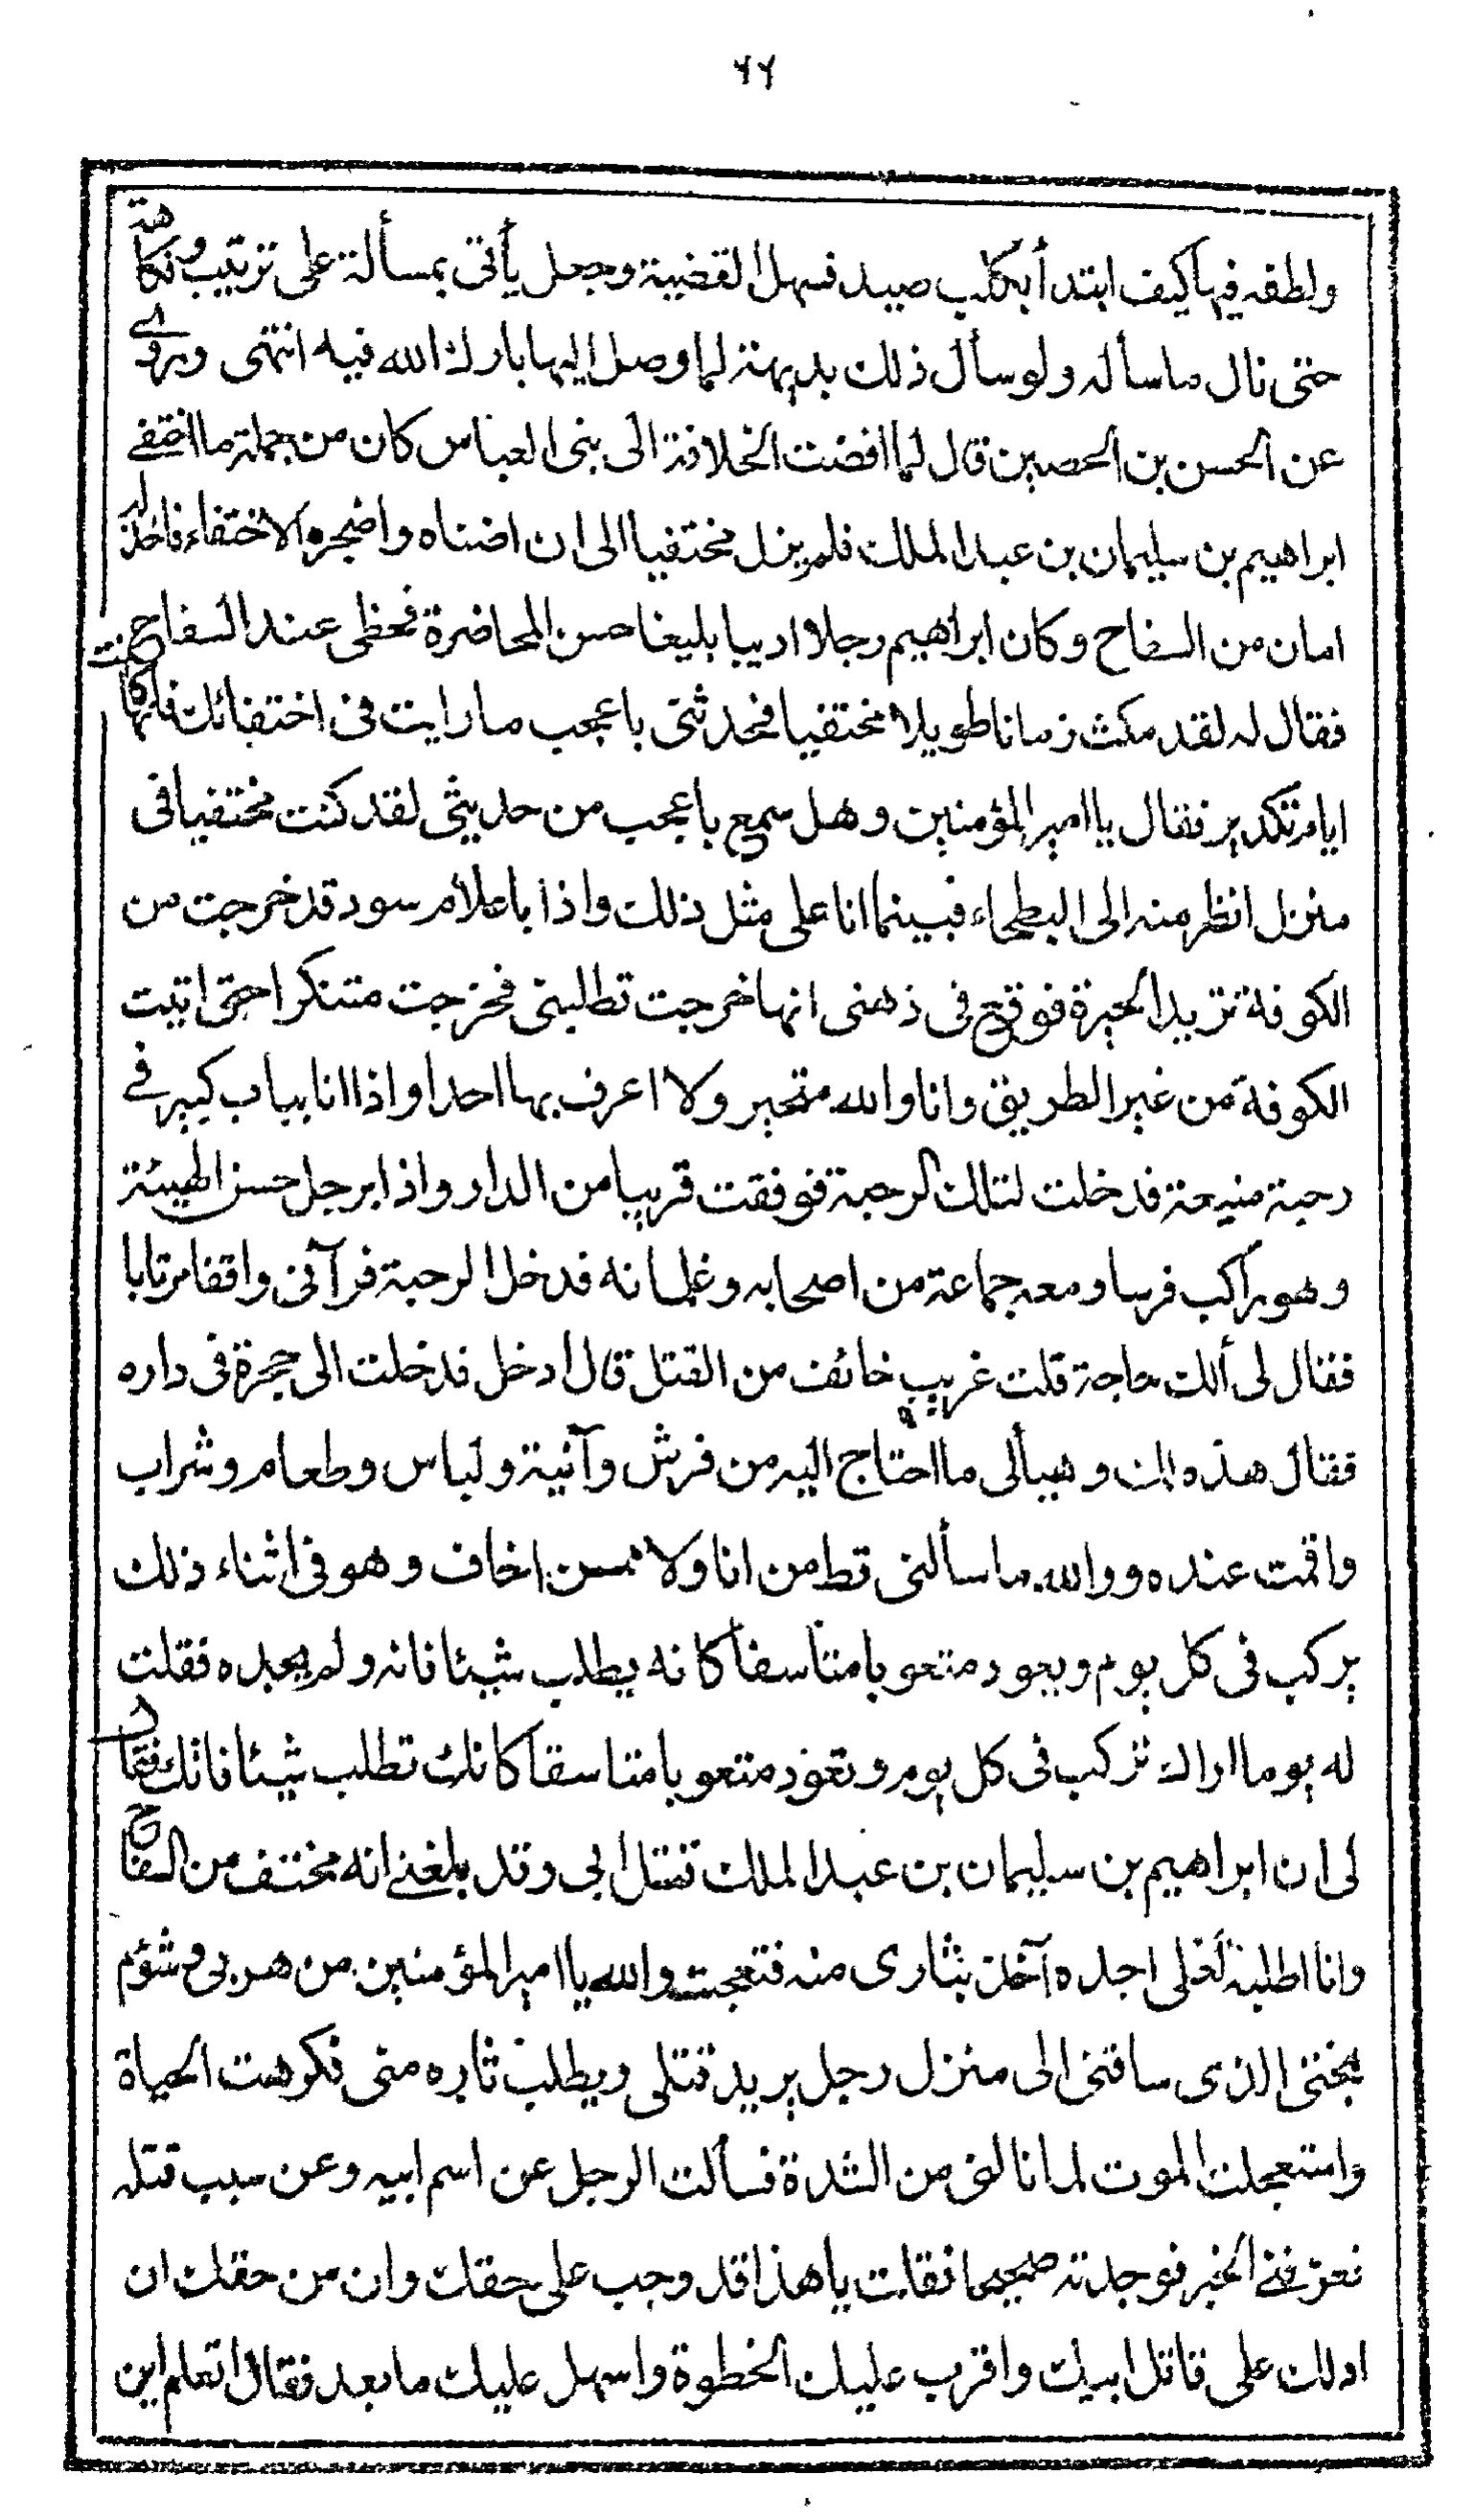 ٢٢
ولطفه فيها كيف ابتدأ بكلب صيد فسهل القضية وجعل يأتى بمسألة على ترتيب وفكاهة
حتى نال ما سأله ولو سأل ذلك بديهة لما وصل اليها بارك الله فيه انتهى وروى
عن الحسن بن الحصين قال لما افضت الخلافة الى بنى العباس كان من جملة ما اختفى
ابراهيم بن سليمان بن عبد الملك فلم يزل مختفيا الى ان اضناه واضجره الاختفاء فاخذ له
امان من السفاح وكان ابراهيم رجلا اديبا بليغا حسن المحاضرة فحظى عند السفاح
فقال له لقد مكثت زمانا طويلا مختفيا فحدثنى باعجب ما رايت فى اختفائك فانها كانت
ايام تكدير فقال يا امير المؤمنين وهل سمع باعجب من حديثى لقد كنت مختفيا فى
منزل انظر منه الى البطحاء فبينما انا على مثل ذلك واذا باعلام سود قد خرجت من
الكوفة تريد الحيرة فوقع فى ذهنى انها خرجت تطلبنى فخرجت متنكرا حتى اتيت
الكوفة من غير الطريق وانا والله متحير ولا اعرف بها احدا واذا انا بباب كبير فى
رحبة منيعة فدخلت لتلك الرحبة فوقفت قريبا من الدار واذا برجل حسن الهيئة
وهو راكب فرسا ومعه جماعة من اصحابه وغلمانه فدخل الرحبة فرآنى واقفا مرتابا
فقال لى ألك حاجة قلت غريب خائف من القتل قال ادخل فدخلت الى حجرة فى داره
فقال هذه لك وهيأ لى ما احتاج اليه من فرش وآنية ولباس وطعام وشراب
واقمت عنده ووالله ما سألنى قط من انا ولا ممن اخاف وهو فى اثناء ذلك
يركب فى كل يوم ويعود متعوبا متأسفا كانه يطلب شيئا فاته ولم يجده فقلت
له يوما اراك تركب فى كل يوم وتعود متعوبا متاسفا كانك تطلب شيئا فاتك فقال
لى ان ابراهيم بن سليمان بن عبد الملك قتل ابى وقد بلغنى انه مختف من السفاح
وانا اطلبه لعلى اجده آخذ بثارى منه فتعجبت والله يا امير المؤمنين من هربى وشؤم
بختى الذى ساقنى الى منزل رجل يريد قتلى ويطلب ثاره منى فكرهت الحياة
واستعجلت الموت لما نالنى من الشدة فسألت الرجل عن اسم ابيه وعن سبب قتله
فعرّفنى الخبر فوجدته صحيحا فقلت يا هذا قد وجب على حقك وان من حقك ان
ادلك على قاتل ابيك واقرب عليك الخطوة واسهل عليك ما بعد فقال اتعلم اين